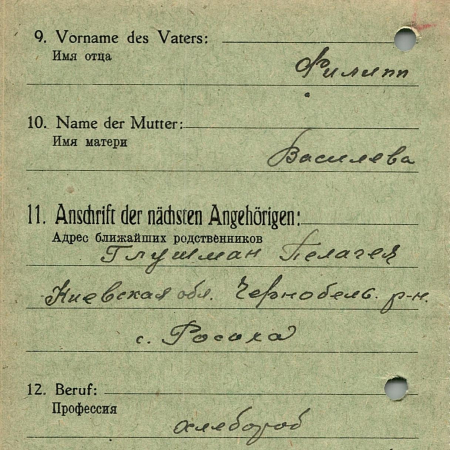 9. Vorname des Vaters:
Имя отца
Филипп
10. Name der Mutter:
Имя матери
Василева
11. Anschrift der nächsten Angehörigen:
Адрес ближайших родственников
Глушман Пелагея
Киевская обл. Чернобель. р-н.
с. Росоха
12. Beruf:
Профессия
хлебороб